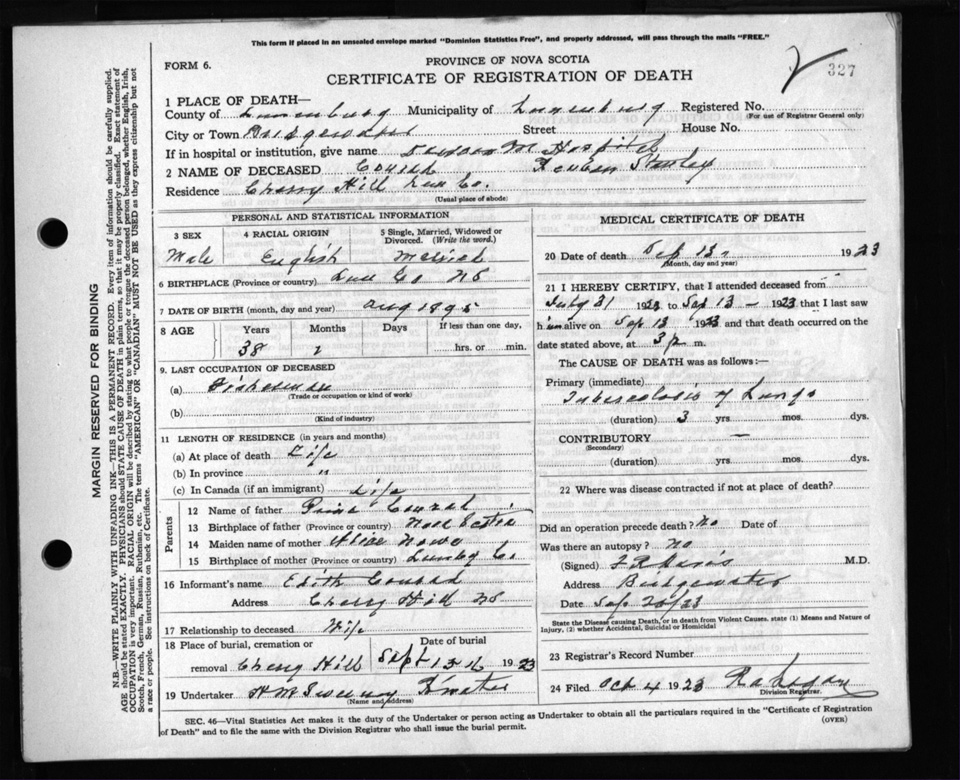 This form if placed in an unsealed envelope marked "Dominion Statistics Free", and properly addressed, will pass through the mails "FREE."
FORM 6.
PROVINCE OF NOVA SCOTIA
CERTIFICATE OF REGISTRATION OF DEATH
327
1 PLACE OF DEATH—
County of Lunenburg Municipality of Lunenburg Registered No.
(For use of Registrar General only)
City or Town Bridgewater Street House No.
If in hospital or institution, give name M Hospital
2 NAME OF DECEASED Conrad Reuben Stanley
Residence Cherry Hill Lun Co.
(Usual place of abode)
PERSONAL AND STATISTICAL INFORMATION
3 SEX 4 RACIAL ORIGIN 5 Single, Married, Widowed or Divorced. (Write the word.)
Male English Married
6 BIRTHPLACE (Province or country) Lun Co NS
7 DATE OF BIRTH (month, day and year) Aug 1895
8 AGE Years Months Days If less than one day,
38 hrs. or min.
9. LAST OCCUPATION OF DECEASED
(a) Fisherman
(Trade or occupation or kind of work)
(b)
(Kind of industry)
11 LENGTH OF RESIDENCE (in years and months)
(a) At place of death Life
(b) In province "
(c) In Canada (if an immigrant) Life
Parents
12 Name of father Conrad
13 Birthplace of father (Province or country) Nova Scotia
14 Maiden name of mother
15 Birthplace of mother (Province or country) Lunbg Co
16 Informant's name Edith Conrad
Address Cherry Hill NS
17 Relationship to deceased Wife
18 Place of burial, cremation or removal Cherry Hill
Date of burial Sept 15th 1923
19 Undertaker H M Sweeney
(Name and address)
MEDICAL CERTIFICATE OF DEATH
20 Date of death Sep 13 1923
(Month, day and year)
21 I HEREBY CERTIFY, that I attended deceased from
July 31 1923 to Sep 13 – 1923 that I last saw
him alive on Sep 13 1923 and that death occurred on the
date stated above, at 3 p m.
The CAUSE OF DEATH was as follows:—
Primary (immediate)
Tuberculosis of Lungs
(duration) 3 yrs. mos. dys.
CONTRIBUTORY —
(Secondary)
(duration) yrs. mos. dys.
22 Where was disease contracted if not at place of death?
Did an operation precede death? No Date of
Was there an autopsy? No
(Signed) M.D.
Address Bridgewater
Date Sep 20/23
State the Disease causing Death, or in death from Violent Causes, state (1) Means and Nature of Injury, (2) whether Accidental, Suicidal or Homicidal
23 Registrar's Record Number
24 Filed Oct 4 1923
Division Registrar.
SEC. 46—Vital Statistics Act makes it the duty of the Undertaker or person acting as Undertaker to obtain all the particulars required in the "Certificate of Registration
of Death" and to file the same with the Division Registrar who shall issue the burial permit.
(OVER)
MARGIN RESERVED FOR BINDING
N.B.—WRITE PLAINLY WITH UNFADING INK—THIS IS A PERMANENT RECORD. Every item of information should be carefully supplied.
AGE should be stated EXACTLY. PHYSICIANS should STATE CAUSE OF DEATH in plain terms, so that it may be properly classified. Exact statement of
OCCUPATION is very important. RACIAL ORIGIN will be described by stating to what people or tongue the deceased person belonged, whether English, Irish,
Scotch, French, German, Russian, Ruthenian, etc. The terms "AMERICAN" OR "CANADIAN" MUST NOT BE USED as they express citizenship but not
a race or people. See instructions on back of Certificate.